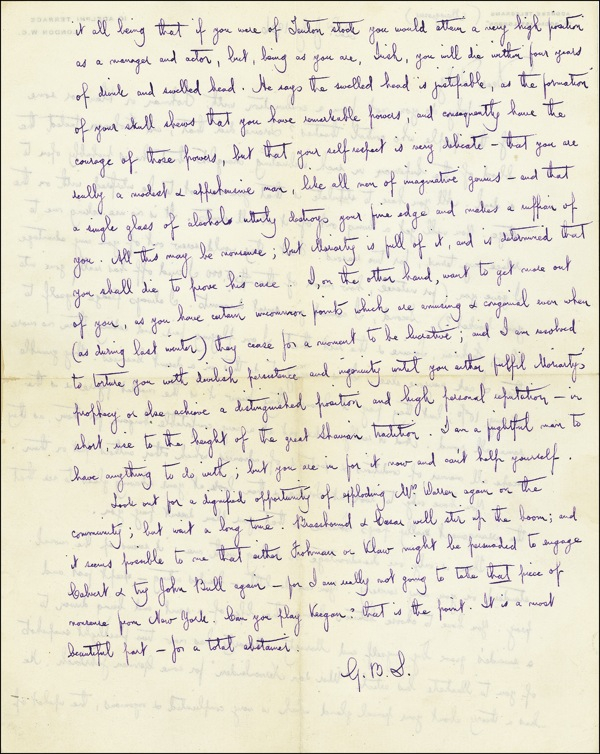 it all being that if you were of Teuton stock you would attain a very high position
as a manager and actor, but, being as you are, Irish, you will die within four years
of drink and swelled head. He says the swelled head is justifiable, as the formation
of your skull shews that you have remarkable powers, and consequently have the
courage of those powers, but that your self respect is very delicate – that you are
really a modest & apprehensive man, like all men of imaginative genius – and that
a single glass of alcohol utterly destroys your fine edge and makes a ruffian of
you. All this may be nonsense; but Moriarty is full of it, and is determined that
you shall die to prove his case. I, on the other hand, want to get more out
of you, as you have certain uncommon points which are amusing & congenial even when
(as during last winter) they cease for a moment to be lucrative; and I am resolved
to torture you with devilish persistence and ingenuity until you either fulfil Moriarty's
prophecy or else achieve a distinguished position and high personal reputation – in
short, rise to the height of the great Shavian tradition. I am a frightful man to
have anything to do with; but you are in for it now and can't help yourself.
Look out for a dignified opportunity of exploding Mrs Warren again on the
community; but wait a long time. Brassbound & Caesar will stir up the boom; and
it seems possible to me that either Frohman or Klaw might be persuaded to engage
Calvert & try John Bull again – for I am really not going to take that piece of
nonsense from New York. Can you play Keegan? that is the point. It is a most
beautiful part – for a total abstainer.
G.B.S.